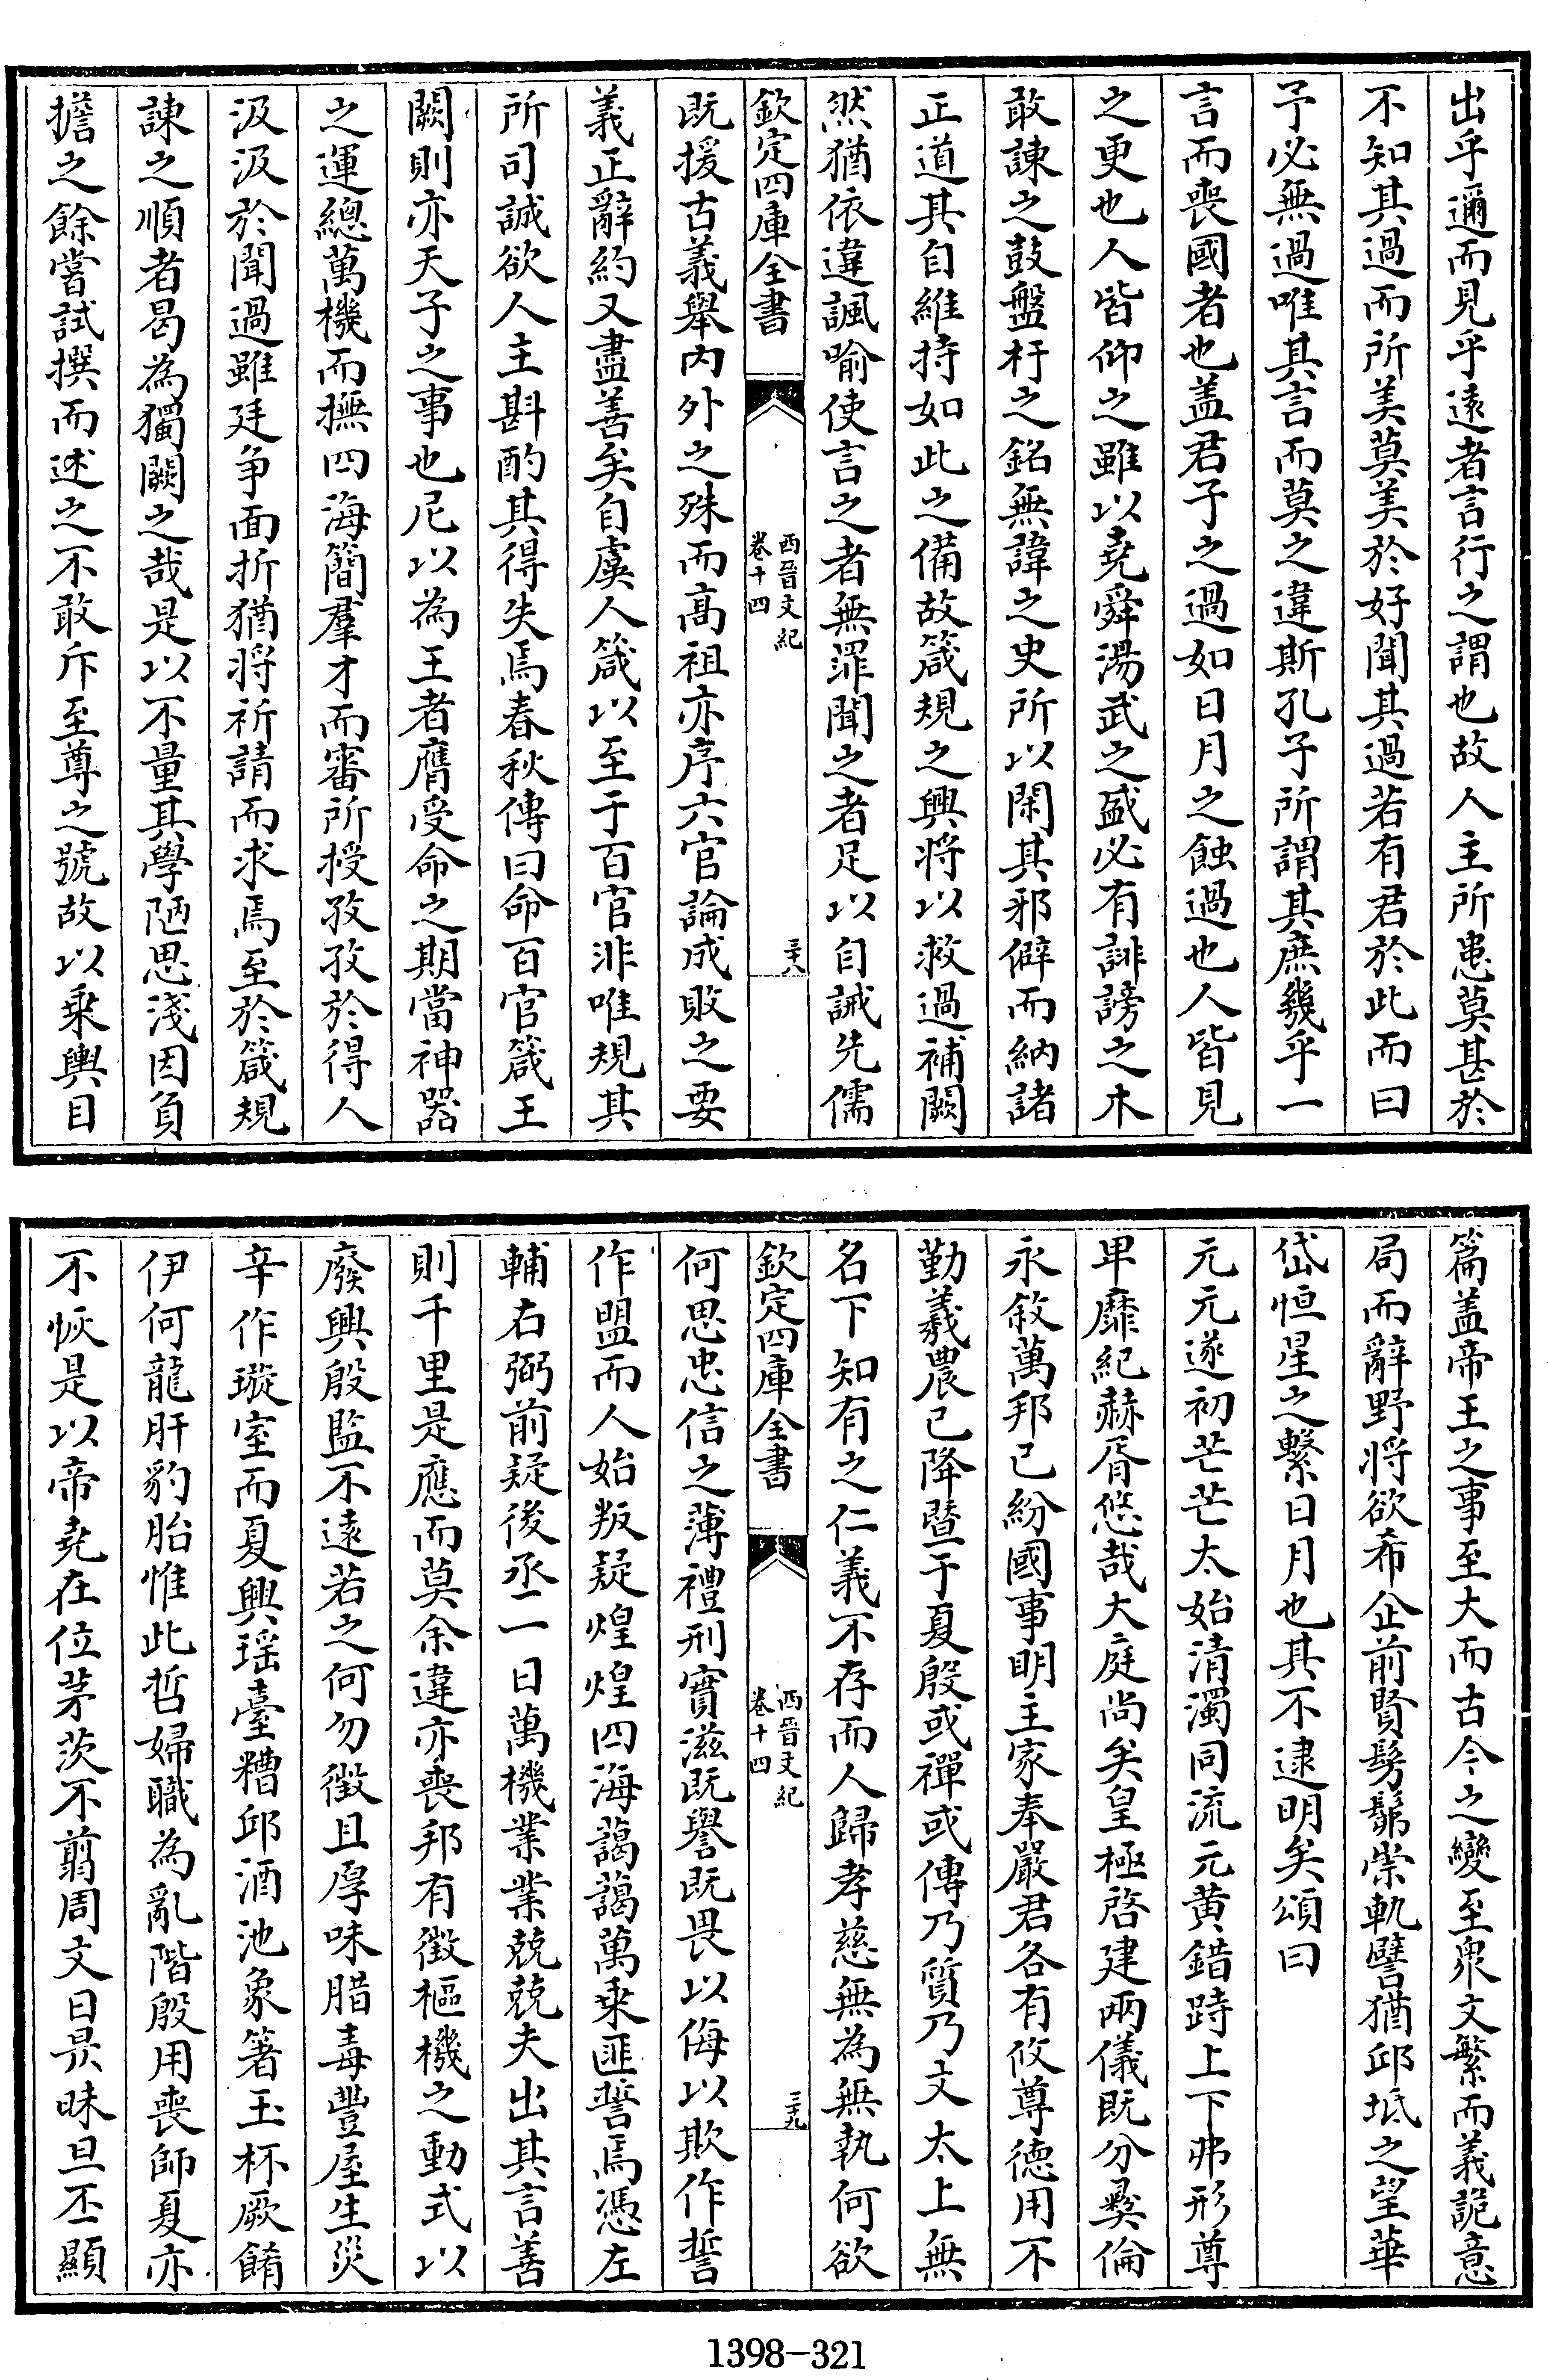 出乎邇而見乎遠者言行之謂也故人主所患莫甚於
不知其過而所美莫美於好聞其過若有君於此而曰
予必無過唯其言而莫之違斯孔子所謂其庶幾乎一
言而喪國者也盖君子之過如日月之蝕過也人皆見
之更也人皆仰之雖以堯舜湯武之盛必有誹謗之木
敢諫之鼓盤杅之銘無諱之史所以閑其邪僻而納諸
正道其自維持如此之備故箴規之興將以救過補闕
然猶依違諷喻使言之者無罪聞之者足以自誡先儒
欽定四庫全書
西晉文紀
卷十四
三十八
既援古義舉内外之殊而高祖亦序六官論成敗之要
義正辭約又盡善矣自虞人箴以至于百官非唯規其
所司誠欲人主斟酌其得失焉春秋傳曰命百官箴王
闕則亦天子之事也尼以為王者膺受命之期當神器
之運總萬機而撫四海簡羣才而審所授孜孜於得人
汲汲於聞過雖廷争面折猶將祈請而求焉至於箴規
諫之順者曷為獨闕之哉是以不量其學陋思淺因負
擔之餘嘗試撰而述之不敢斥至尊之號故以乘輿目
篇盖帝王之事至大而古今之變至衆文繁而義詭意
局而辭野將欲希企前賢髣髴崇軌譬猶邱坻之望華
岱恒星之繫日月也其不逮明矣頌曰
元元遂初芒芒太始清濁同流元黄錯跱上下弗形尊
卑靡紀赫胥悠哉大庭尚矣皇極啓建兩儀既分彛倫
永敘萬邦已紛國事明主家奉嚴君各有攸尊德用不
勤羲農已降暨于夏殷或禪或傳乃質乃文太上無
名下知有之仁義不存而人歸孝慈無為無執何欲
欽定四庫全書
西晉文紀
卷十四
三十九
何思忠信之薄禮刑實滋既譽既畏以侮以欺作誓
作盟而人始叛疑煌煌四海藹藹萬乘匪誓焉憑左
輔右弼前疑後丞一日萬機業業兢兢夫出其言善
則千里是應而莫余違亦喪邦有徴樞機之動式以
廢興殷監不遠若之何勿徴且厚味腊毒豐屋生災
辛作璇室而夏興瑶臺糟邱酒池象箸玉杯厥餚
伊何龍肝豹胎惟此哲婦職為亂階殷用喪師夏亦
不恢是以帝堯在位茅茨不翦周文日昃昧旦丕顯
1398-321